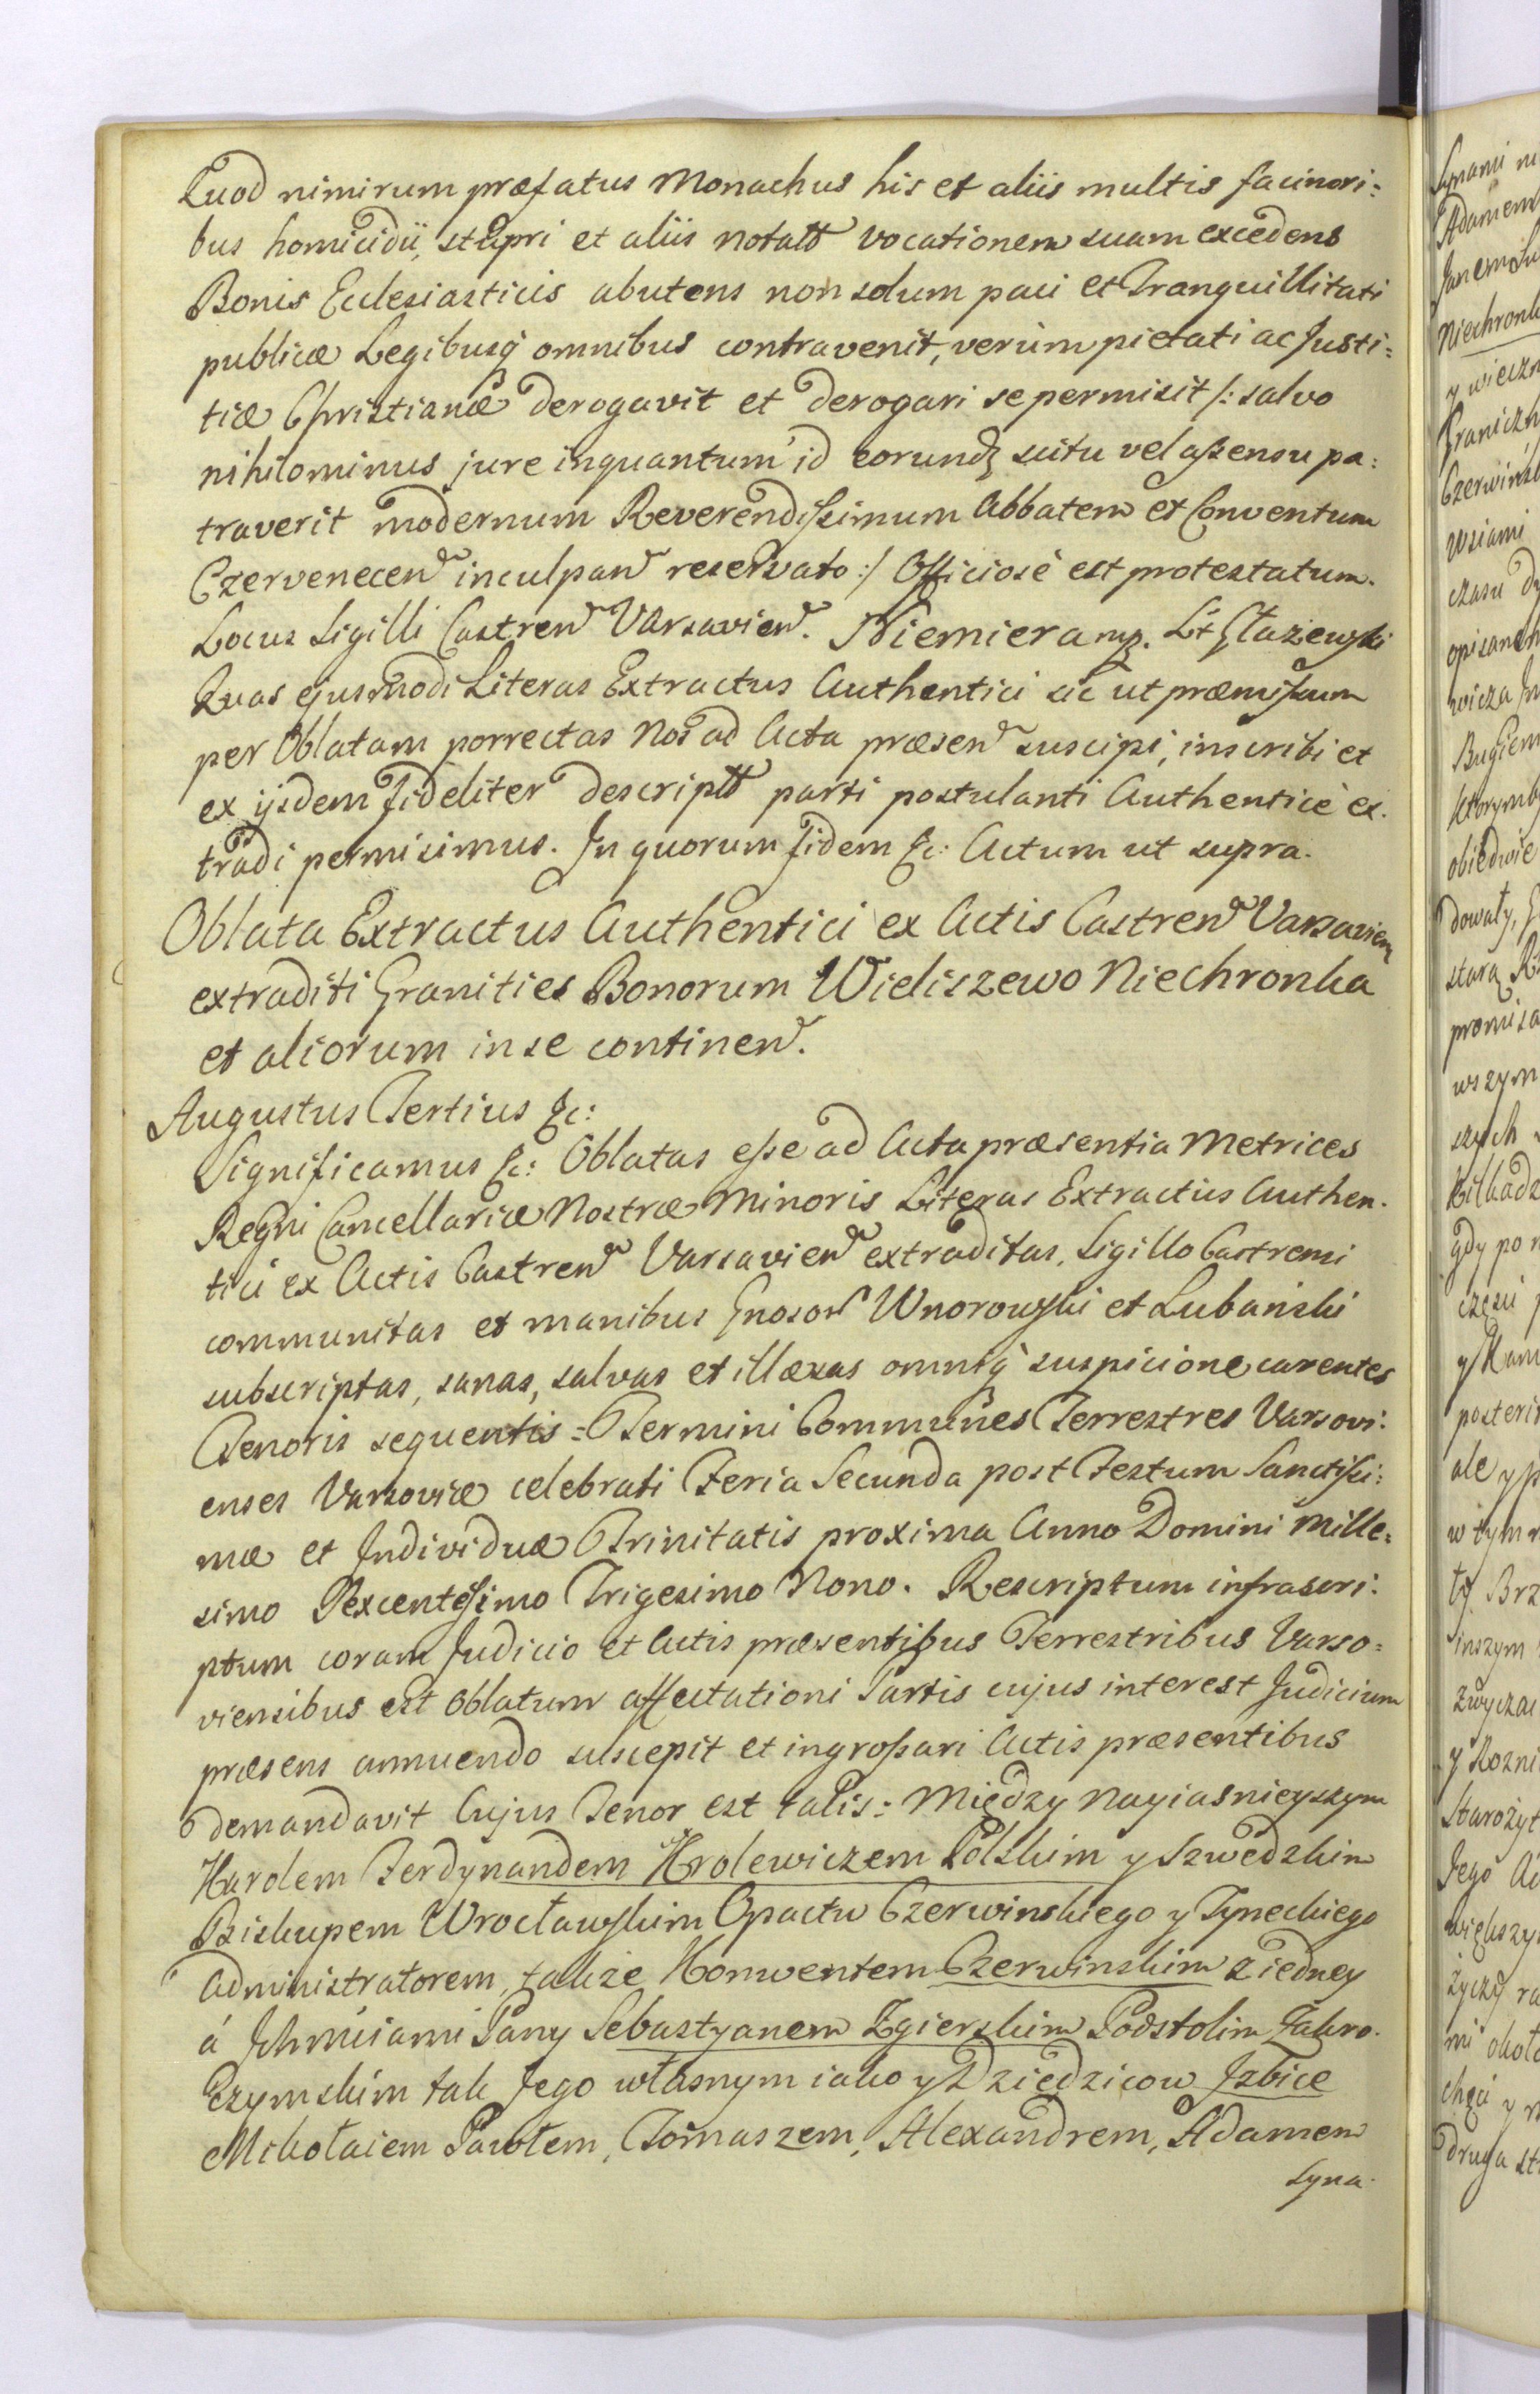 Quod nimirum præfatus Monachus his et aliis multis facinori:
bus homicidii, stupri et aliis notatt vocationem suam excedens
Bonis Ecclesiasticis abutens non solum paci et Tranquillitati
publicæ Legibusq omnibus contravenit, verùm pietati ac Justi:
tiæ Christianæ derogavit et derogari se permisit /: salvo
nihilominus jure inquantum id eorundz scitu vel assensu pa:
traverit modernum Reverendissimum Abbatem et Conventum
Czervenecen inculpan reservato :/ Officiosè est protestatum.
Locus Sigilli Castren Varsavien. Niemiera mp. Lt Głażewski
Quas ejusmodi Literas Extractus Authentici sic ut præmissum
per Oblatam porrectas Nos ad Acta præsen suscipi, inscribi et
ex ijsdem fideliter descriptt parti postulanti Authenticè ex.
tradi permisimus. In quorum fidem &c: Actum ut supra.
Oblata Extractus Authentici ex Actis Castren Varsavien
extraditi Granities Bonorum Wieliszewo Niechronka
et aliorum in se continen.
Augustus Tertius &c:
Significamus &c: Oblatas esse ad Acta præsentia Metrices
Regni Cancellariæ Nostræ Minoris Literas Extractus Authen.
tici ex Actis Castren Varsavien extraditas, Sigillo Castrensi
communitas et manibus Gnosor Wnorowski et Lubański
subscriptas, sanas, salvas et illæsas omniq suspicione carentes
Tenoris sequentis = Termini Communes Terrestres Varsovi:
enses Varsoviæ celebrati Feria Secunda post Festum Sanctissi:
mæ et Individuæ Trinitatis proxima Anno Domini Mille:
simo Sexcentesimo Trigesimo Nono. Rescriptum infrascri:
ptum coram Judicio et Actis præsentibus Terrestribus Varso=
viensibus est oblatum affectationi Partis cujus interest Judicium
præsens annuendo suscepit et ingrossari Actis præsentibus
demandavit Cujus Tenor est talis: Między Nayiasnieyszym
Karolem Ferdynandem Krolewiczem Polskim y Szwedzkim
Biskupem Wrocławskim Opactw Czerwinskiego y Tyneckiego
Administratorem, także Konwentem Czerwinskim z iedney
á Jchmściami Pany Sebastyanem Zgierskim Podstolim Zakro.
Czymskim tak Jego własnym iako y Dziedzicow Jzbice
Mikołaiem Pawłem, Tomaszem, Alexandrem, Adamem
Syna.